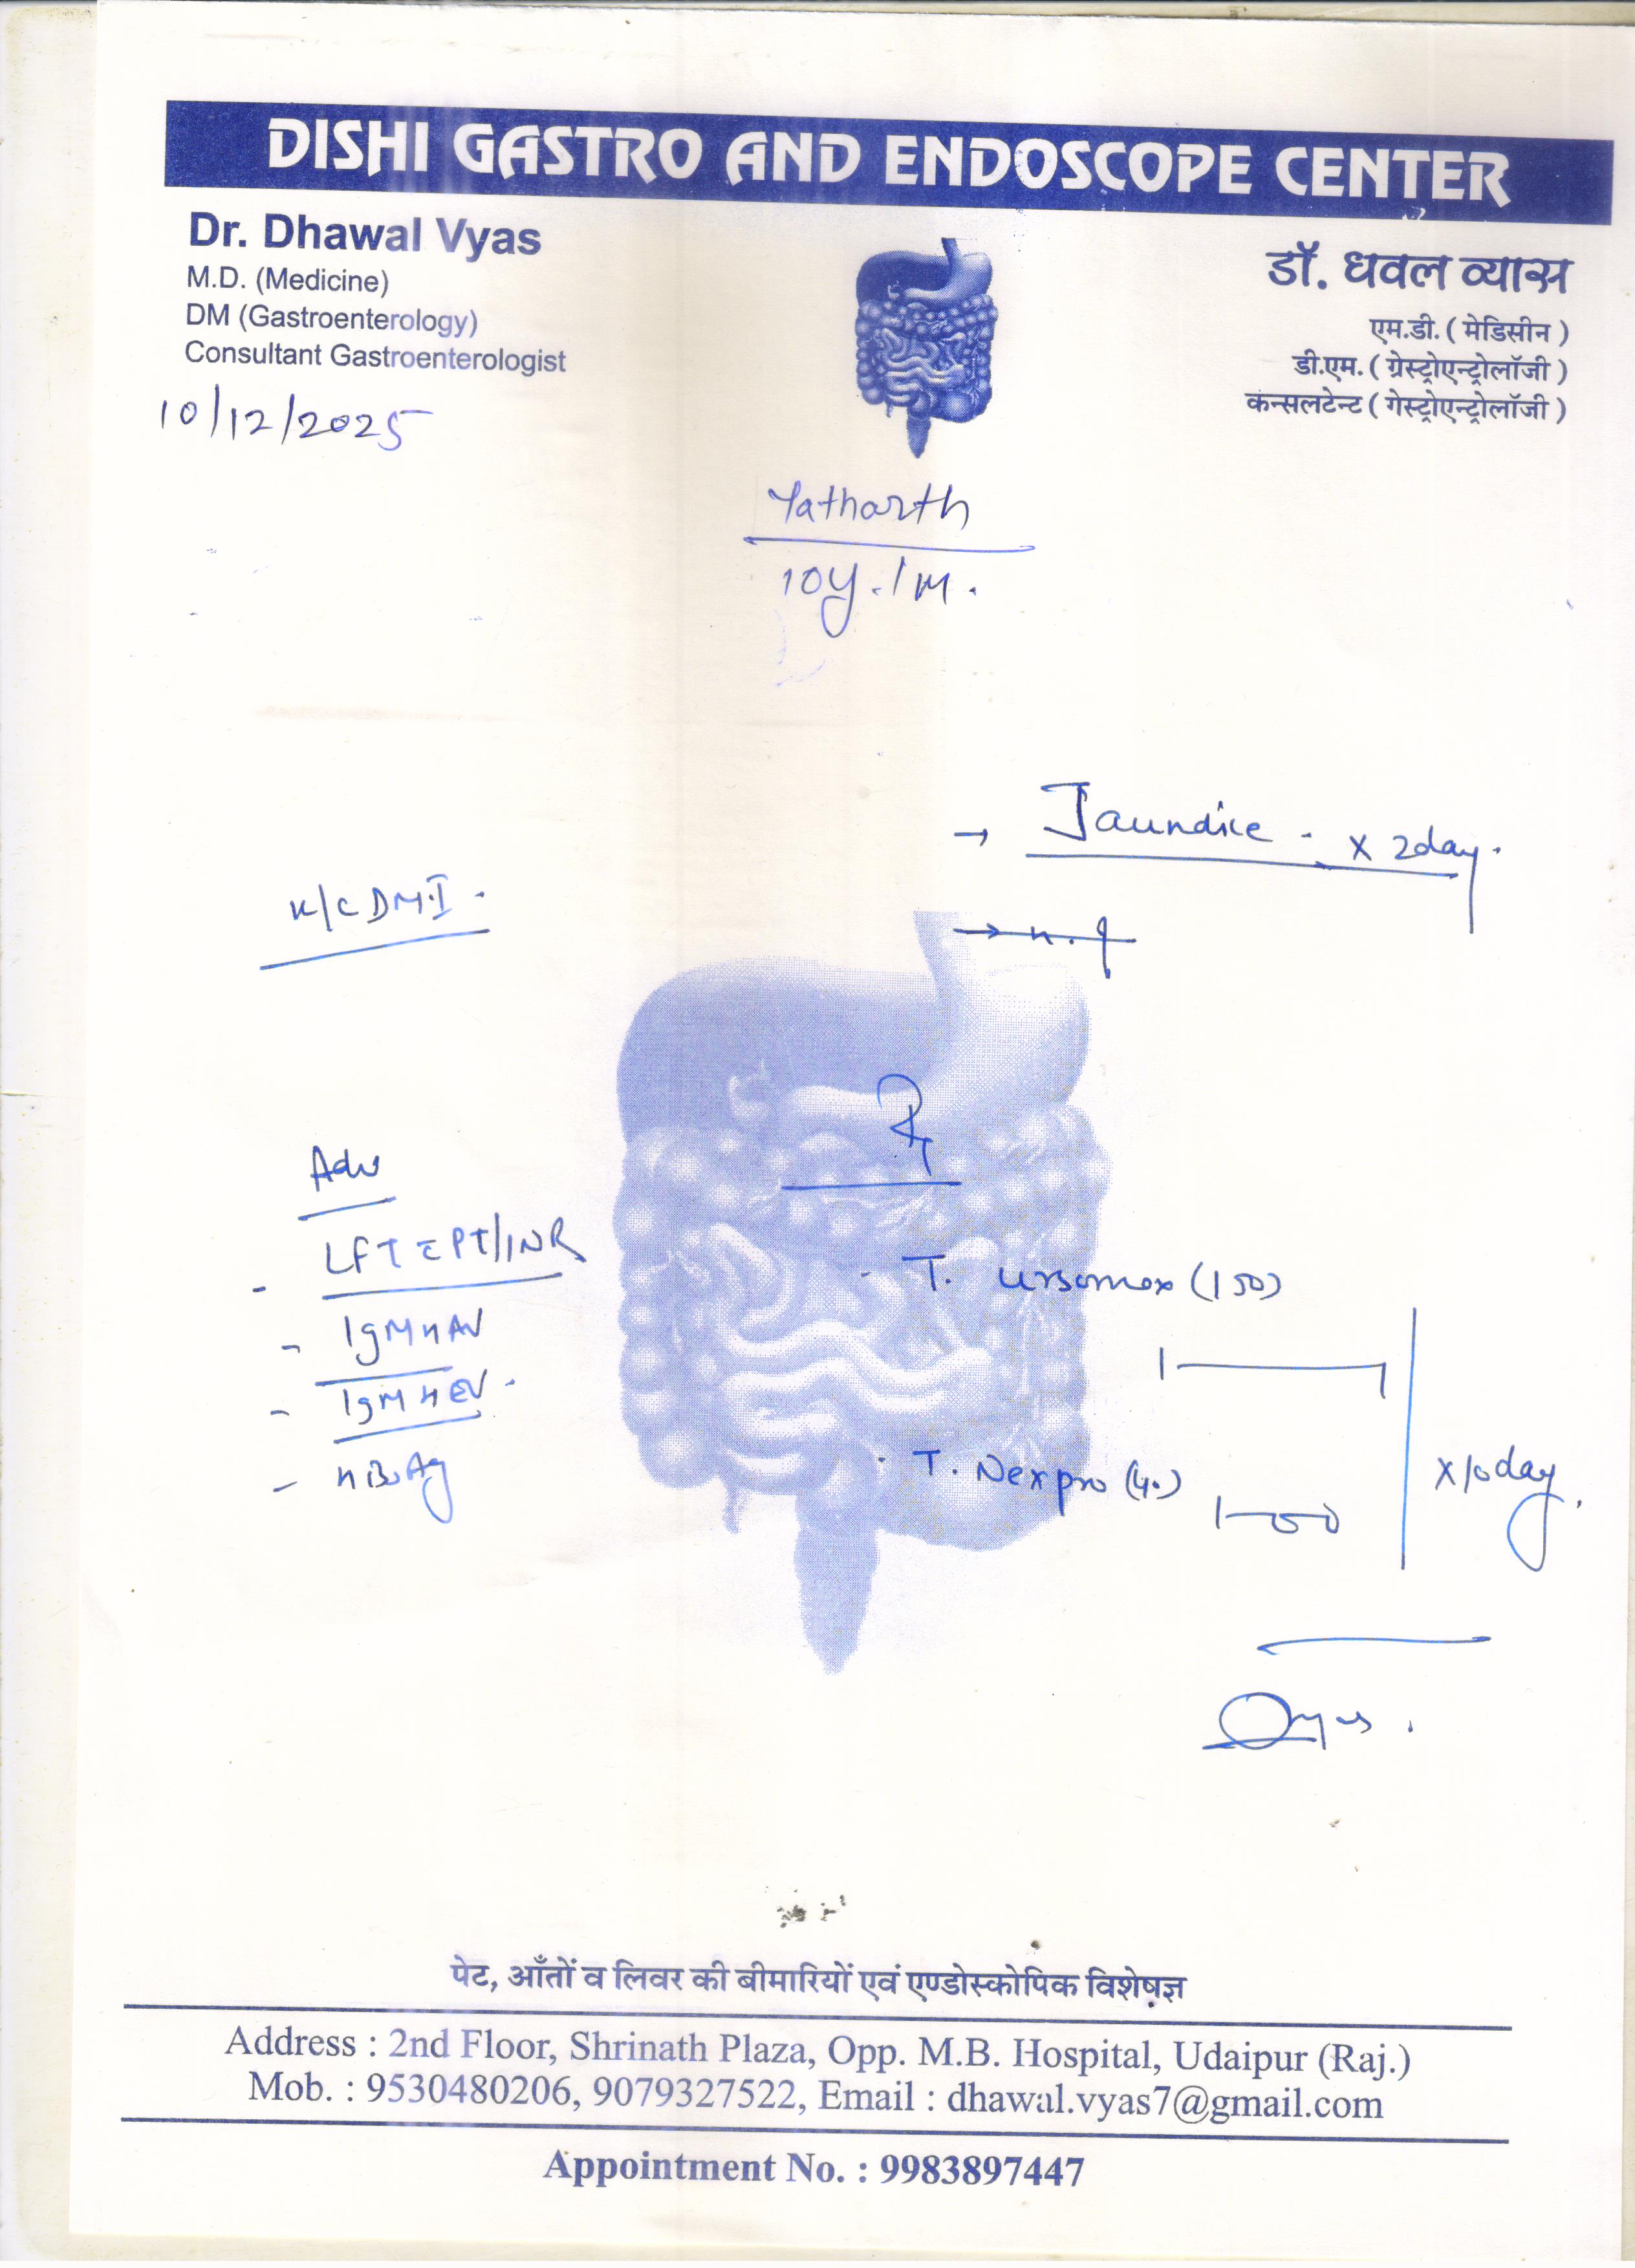 DISHI GASTRO AND ENDOSCOPE CENTER
Dr. Dhawal Vyas
M.D. (Medicine)
DM (Gastroenterology)
Consultant Gastroenterologist
डॉ. धवल व्यास
एम.डी. ( मेडिसीन )
डी.एम. ( ग्रेस्ट्रोएन्ट्रोलॉजी )
कन्सलटेन्ट ( गेस्ट्रोएन्ट्रोलॉजी )
10/12/2025
Yatharth
10y./M.
→ Jaundice - x 2day.
K/C DM-I -
Adv
- LFT c PT/INR
- IgM HAV
- IgM HEV -
- HBsAg
Rx
- T. Ursomax (150)
1 1
- T. Nexpro (40)
x 10day.
पेट, आँतों व लिवर की बीमारियों एवं एण्डोस्कोपिक विशेषज्ञ
Address : 2nd Floor, Shrinath Plaza, Opp. M.B. Hospital, Udaipur (Raj.)
Mob. : 9530480206, 9079327522, Email : dhawal.vyas7@gmail.com
Appointment No. : 9983897447